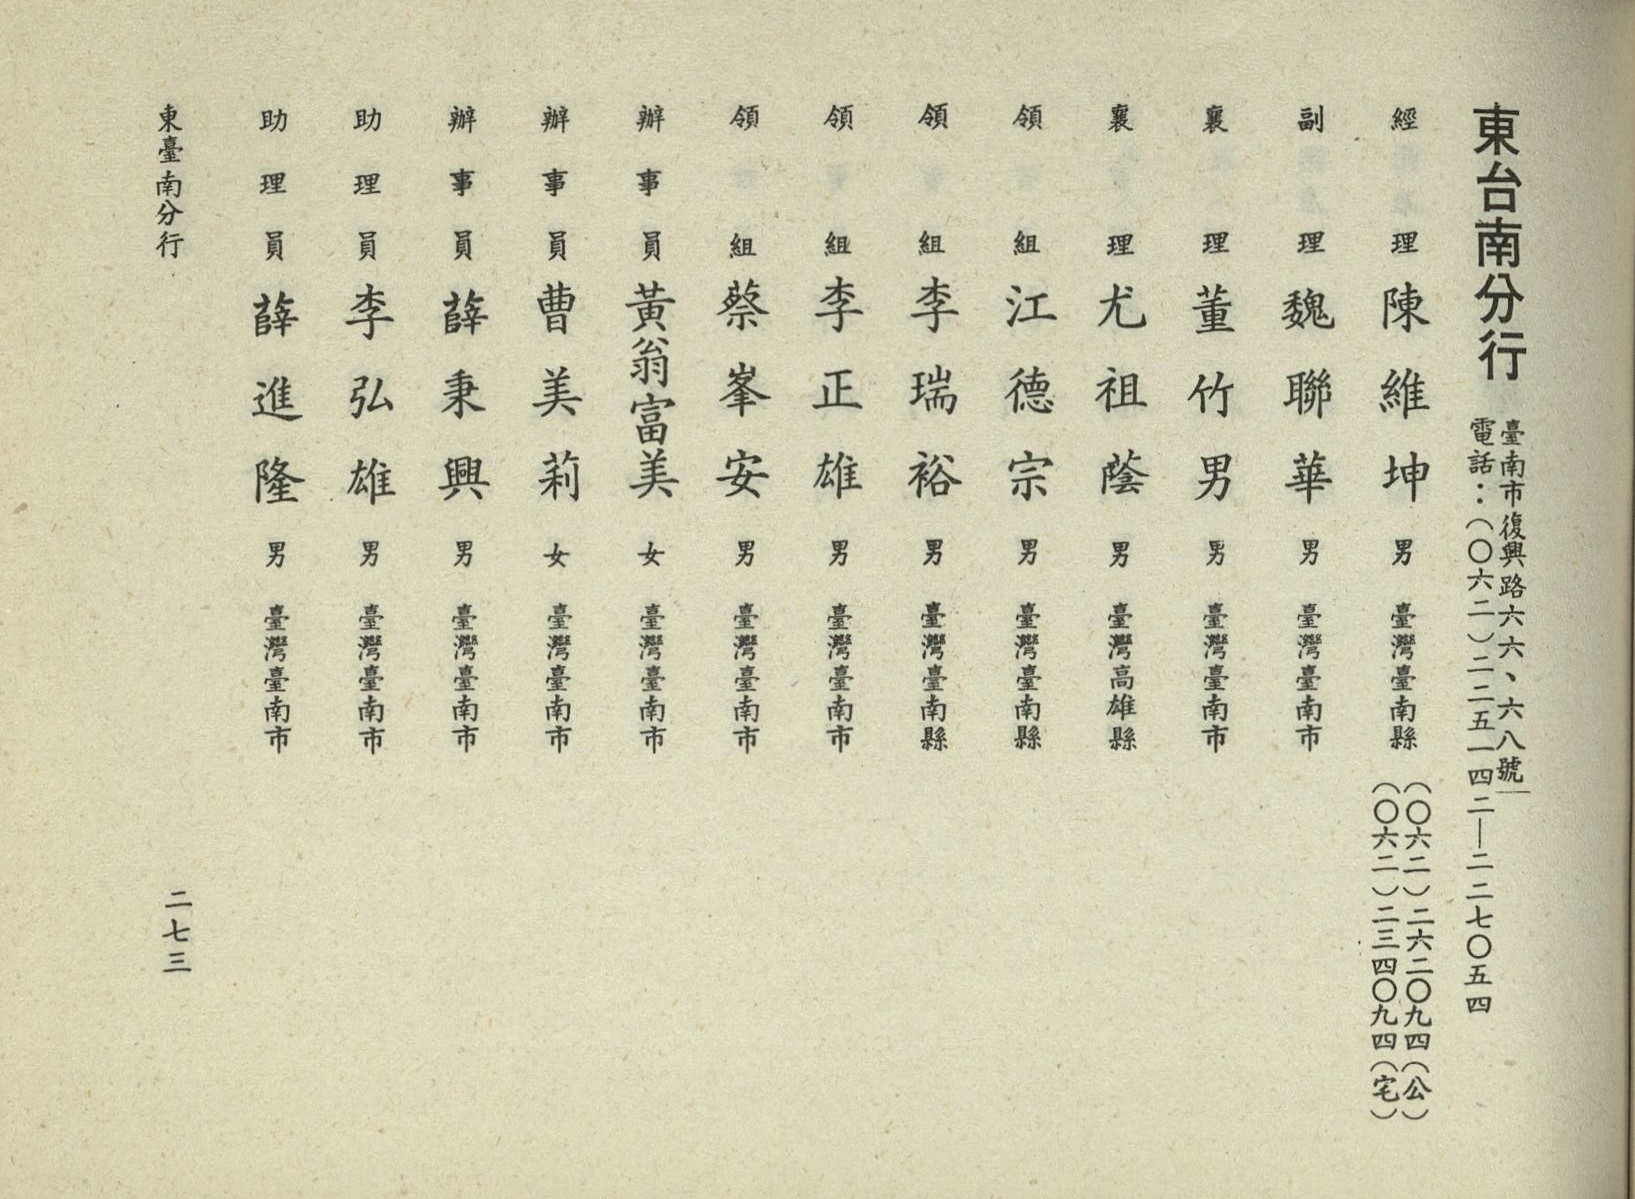 東台南分行
臺南市復興路六六、六八號
電話：（〇六二）二二五一四二—二二七〇五四
經理 陳維坤 男 臺灣臺南縣
（〇六二）二六二〇九四（公）
（〇六二）二三四〇九四（宅）
副理 魏聯華 男 臺灣臺南市
襄理 董竹男 男 臺灣臺南市
襄理 尤祖蔭 男 臺灣高雄縣
領組 江德宗 男 臺灣臺南縣
領組 李瑞裕 男 臺灣臺南縣
領組 李正雄 男 臺灣臺南市
領組 蔡峯安 男 臺灣臺南市
辦事員 黃翁富美 女 臺灣臺南市
辦事員 曹美莉 女 臺灣臺南市
辦事員 薛秉興 男 臺灣臺南市
助理員 李弘雄 男 臺灣臺南市
助理員 薛進隆 男 臺灣臺南市
東臺南分行
二七三